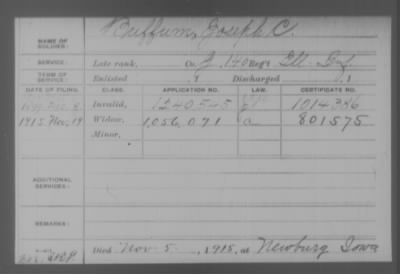 NAME OF SOLDIER: Buffum, Joseph C.
SERVICE: Late rank, Co. 140 Reg't Ill. Inf.
TERM OF SERVICE: Enlisted , 1 Discharged , 1
DATE OF FILING. CLASS. APPLICATION NO. LAW. CERTIFICATE NO.
Invalid, 1240545 1014386
1915 Nov. 19 Widow, 1,056,071 a 801575
Minor,
ADDITIONAL SERVICES:
REMARKS:
Died Nov. 5, 1915, at Newburg Iowa